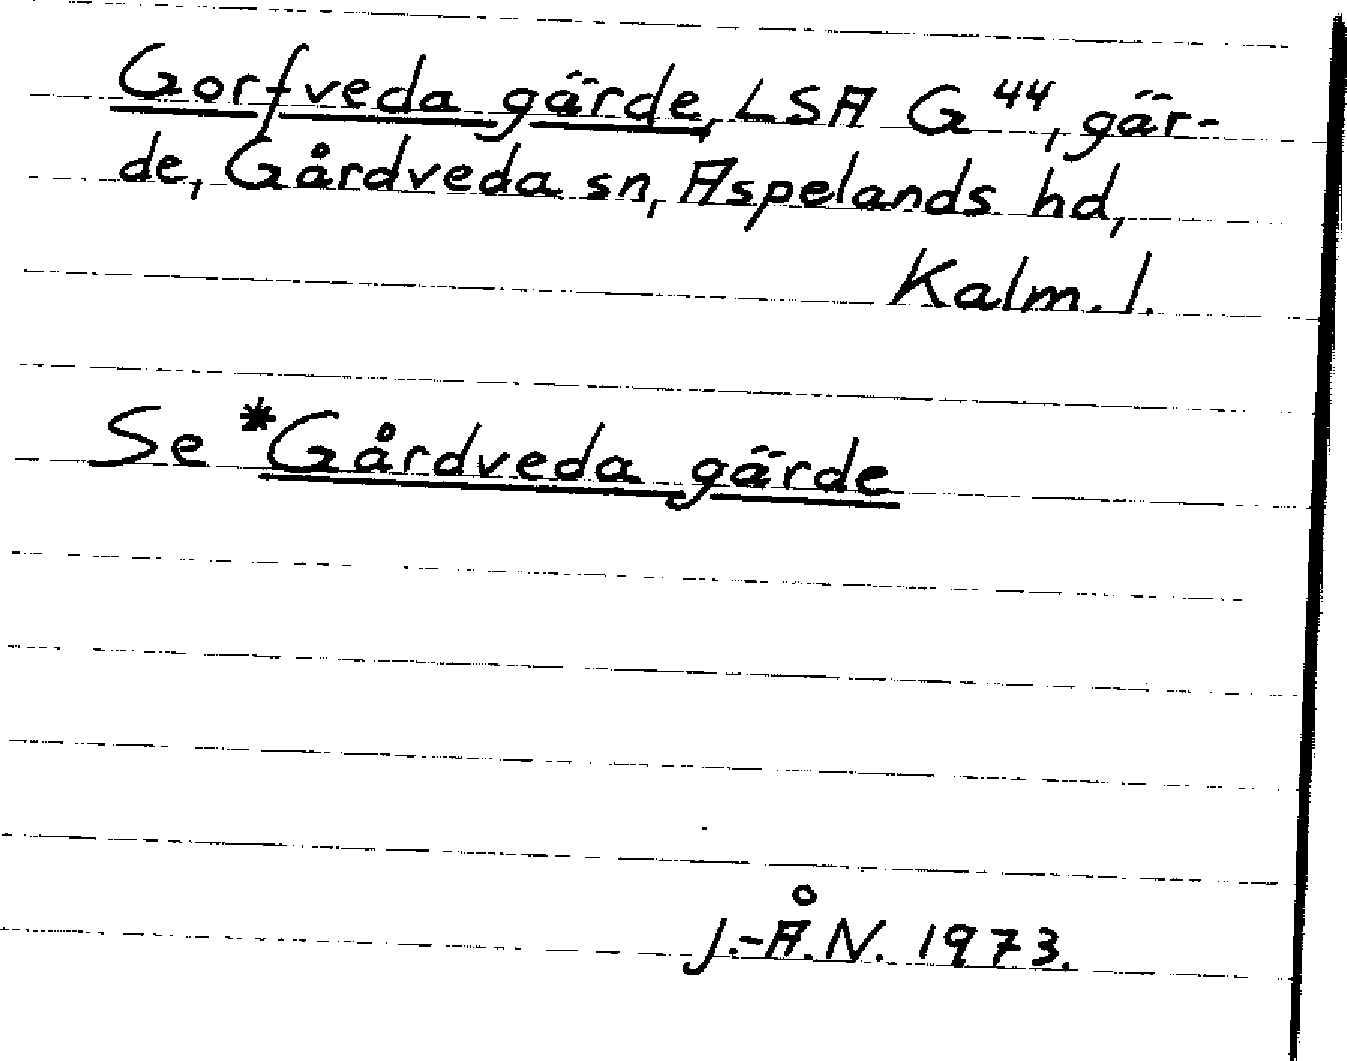 Gorfveda gärde, LSA G 44, gär-
de, Gårdveda sn, Aspelands hd,
Kalm. l.
Se *Gårdveda gärde
J.-Å.N. 1973.